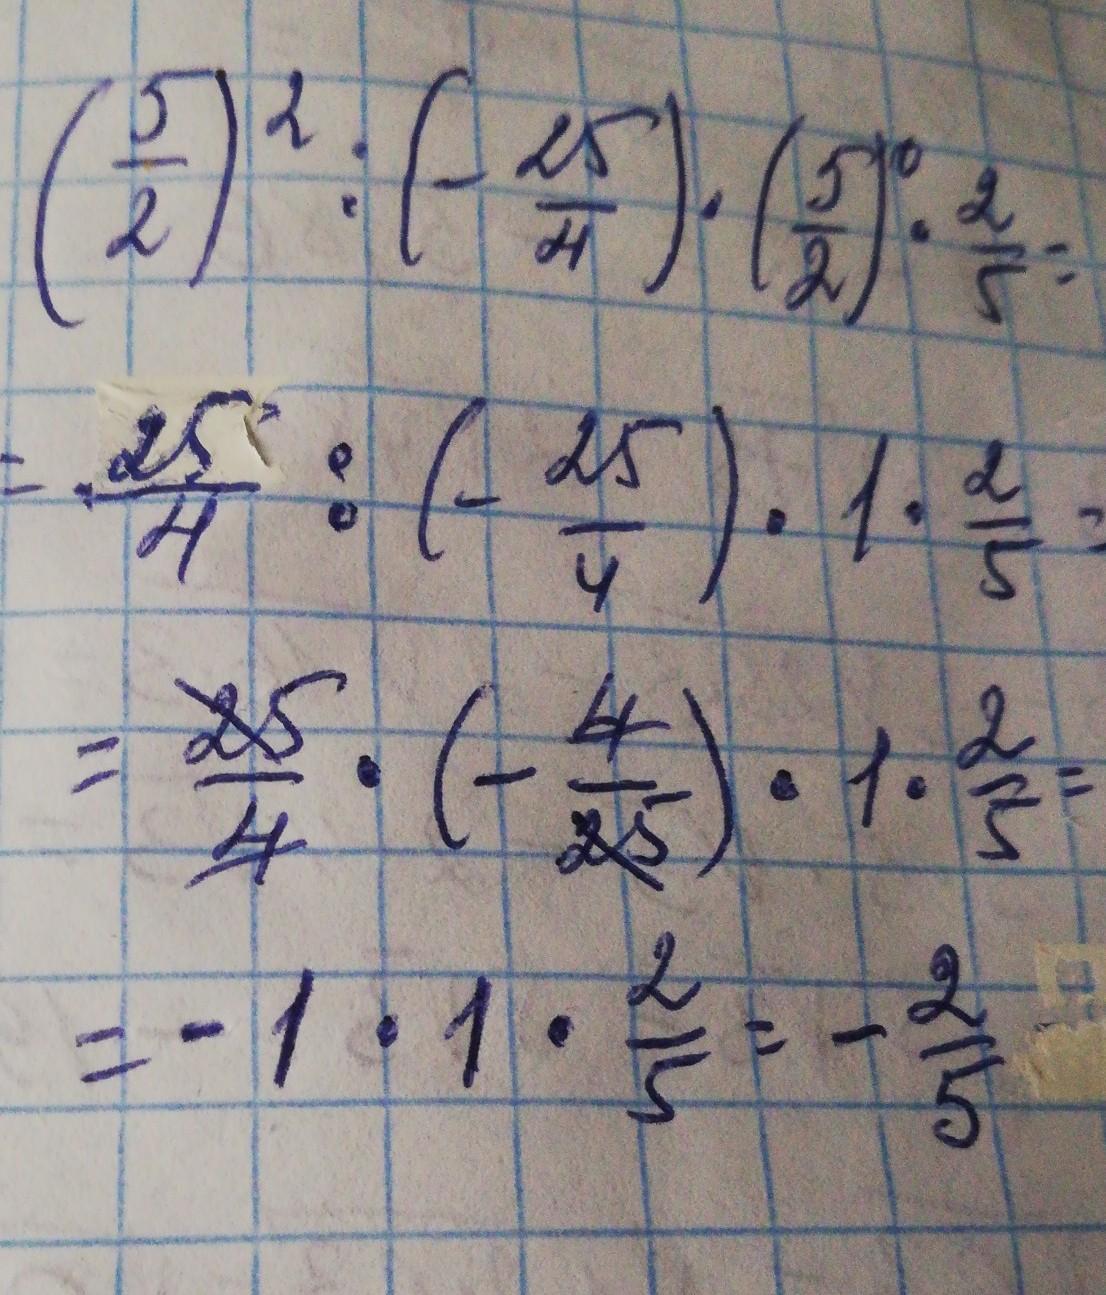 (5/2)² : (-25/4) · (5/2)⁰ · 2/5 =
= 25/4 : (-25/4) · 1 · 2/5 =
= 25/4 · (-4/25) · 1 · 2/5 =
= -1 · 1 · 2/5 = -2/5